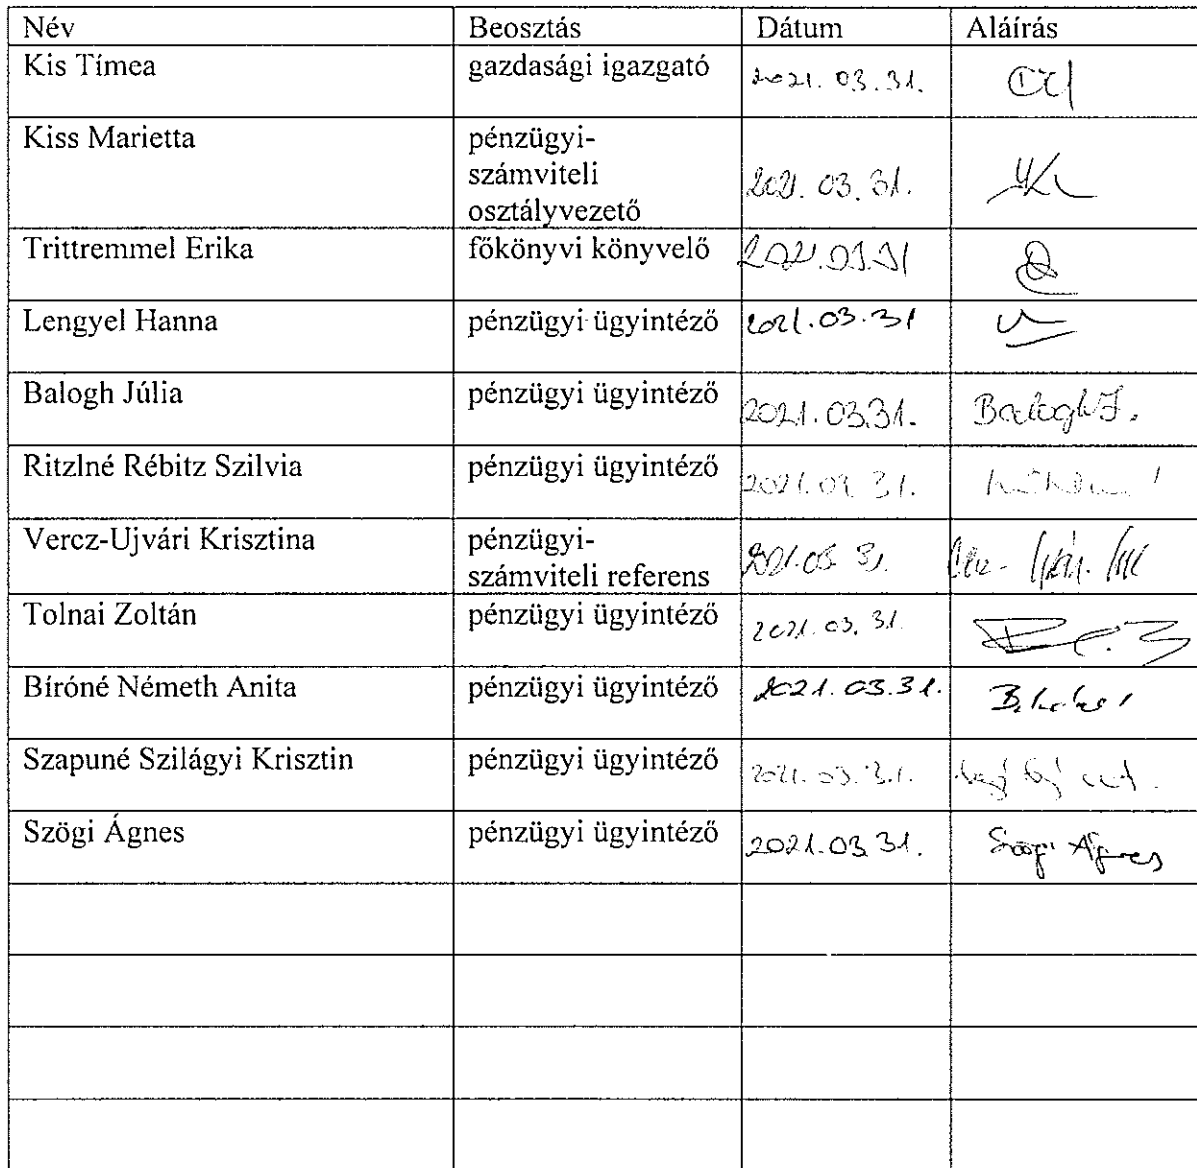 Név Beosztás Dátum Aláírás
Kis Tímea gazdasági igazgató 2021. 03. 31.
Kiss Marietta pénzügyi-
számviteli
osztályvezető 2021. 03. 31.
Trittremmel Erika főkönyvi könyvelő 2021.03.31
Lengyel Hanna pénzügyi ügyintéző 2021.03.31
Balogh Júlia pénzügyi ügyintéző 2021.03.31. Balogh J.
Ritzlné Rébitz Szilvia pénzügyi ügyintéző 2021.03 31.
Vercz-Ujvári Krisztina pénzügyi-
számviteli referens 2021.03 31.
Tolnai Zoltán pénzügyi ügyintéző 2021. 03. 31.
Bíróné Németh Anita pénzügyi ügyintéző 2021.03.31.
Szapuné Szilágyi Krisztin pénzügyi ügyintéző 2021. 03. 31.
Szögi Ágnes pénzügyi ügyintéző 2021.03 31. Szögi Ágnes